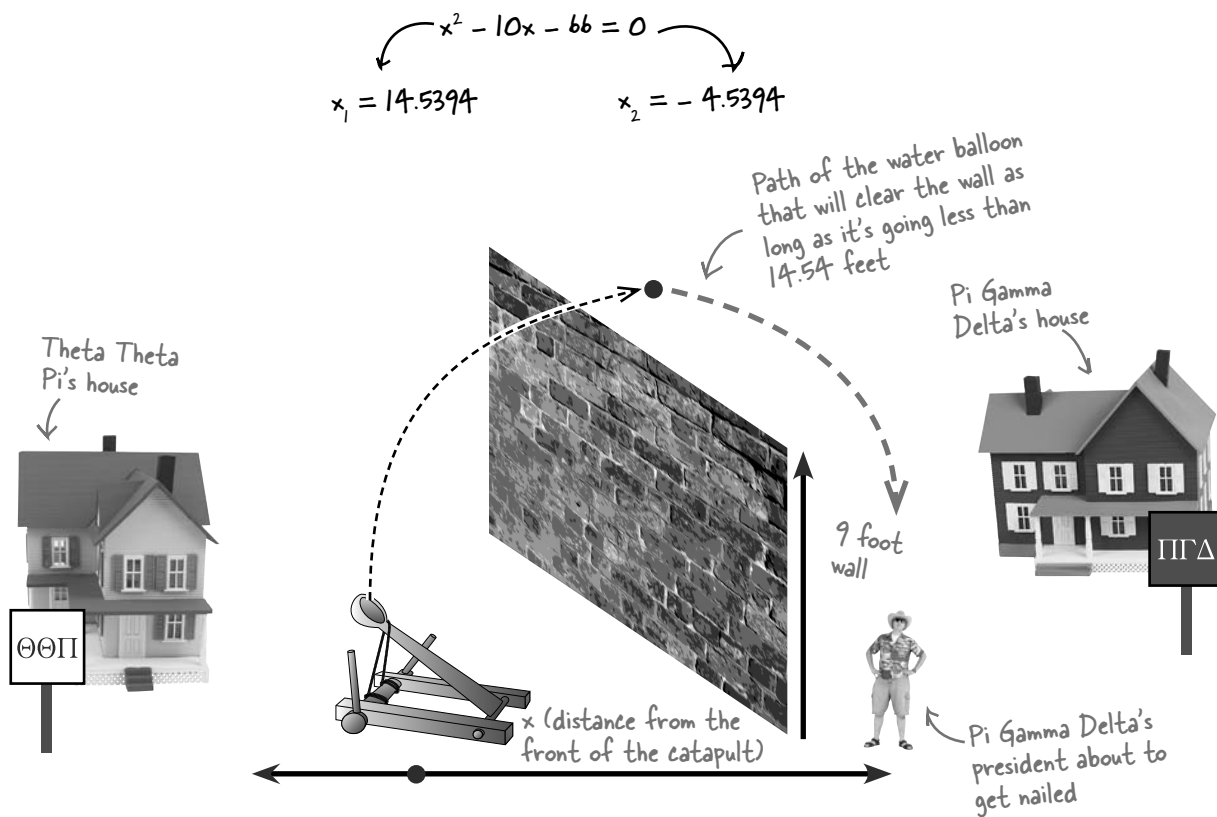 x² - 10x - 66 = 0
x₁ = 14.5394
x₂ = - 4.5394
Path of the water balloon
that will clear the wall as
long as it's going less than
14.54 feet
Pi Gamma
Delta's house
Theta Theta
Pi's house
9 foot
wall
ΠΓΔ
ΘΘΠ
x (distance from the
front of the catapult)
Pi Gamma Delta's
president about to
get nailed